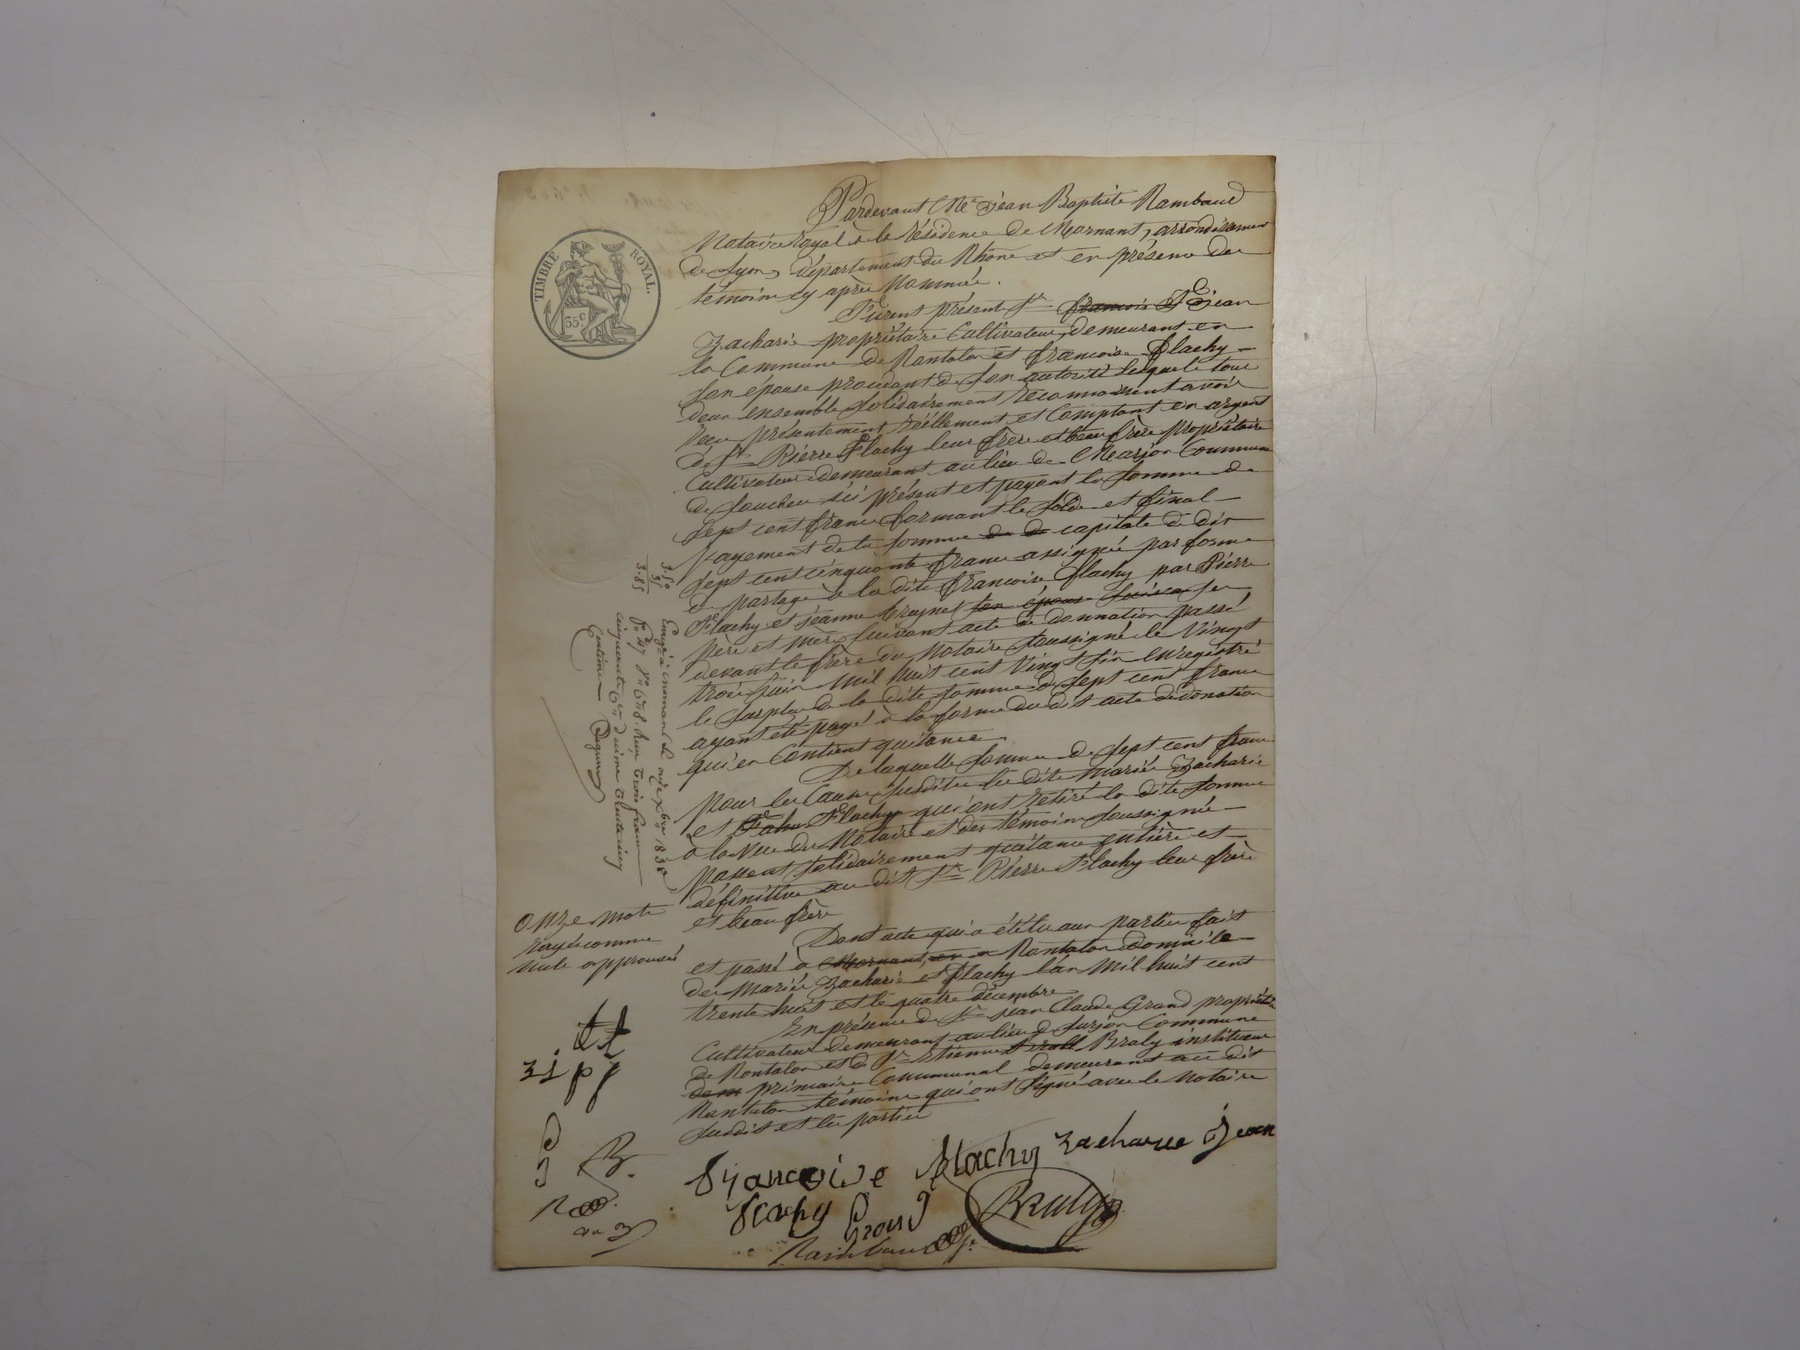 Pardevant Me Jean Baptiste Rambaud
Notaire Royal à la résidence de Mornant, arrondissement
de Lyon, département du Rhône et en présence des
témoins cy après Nommés.
TIMBRE ROYAL.
35c
Furent présent Sr françois F Jean
Zacharie propriétaire Cultivateur demeurant en
la Commune de Rontalon et françoise Flachy
son épouse procédant de son autorité lesquels tous
deux ensemble solidairement reconnaissent avoir
reçu présentement réellement et Comptant en argent
de Sr Pierre Flachy leur frère et beau frère propriétaire
Cultivateur demeurant au lieu de Marjon Commune
de Soucieu ici présent et payant la somme de
sept cent francs formant le solde et final
payement de la somme de de capitale de dix
sept cent cinquante francs assignée par forme
de partage à la dite françoise Flachy par Pierre
Flachy et Jeanne son épouse ses
père et mère suivant acte de donnation passé
devant le frère du Notaire soussigné le Vingt
trois juin mil huit cent Vingt six enregistré
le surplus de la dite somme de sept cent francs
ayant été payé à la forme du dit acte de donation
qui en Contient quitance.
De laquelle somme de sept cent francs
pour les Causes susdites les dits mariés Zacharie
et Flachy qui ont retiré la dite somme
à la Vue du Notaire et des témoins soussignés
passent solidairement quitance entière et
définitive au dit Sr Pierre Flachy leur frère
et beau frère
Dont acte qui a été lu aux parties fait
et passé à Mornant, en a Rontalon domicile
des mariés Zacharie et Flachy l'an Mil huit cent
trente huit et le quatre décembre
En présence de Sr Jean Claude Grand propriétaire
Cultivateur demeurant au lieu de Commune
de Rontalon et de Sr Etienne Braly instituteur
dem primaire Communal demeurant au dit
Rontalon témoins qui ont signé avec le Notaire
susdit et les parties
3.50
35
3.85
Enregé à Mornant le onze xbre 1838
fo 27 Vo Reçu trois francs
cinquante cmes dixième trente cinq
Centimes
Onze mots
rayés comme
nuls approuvés
françoise flachy Zacharie Jean
flachy Grand Braly
Rambaud